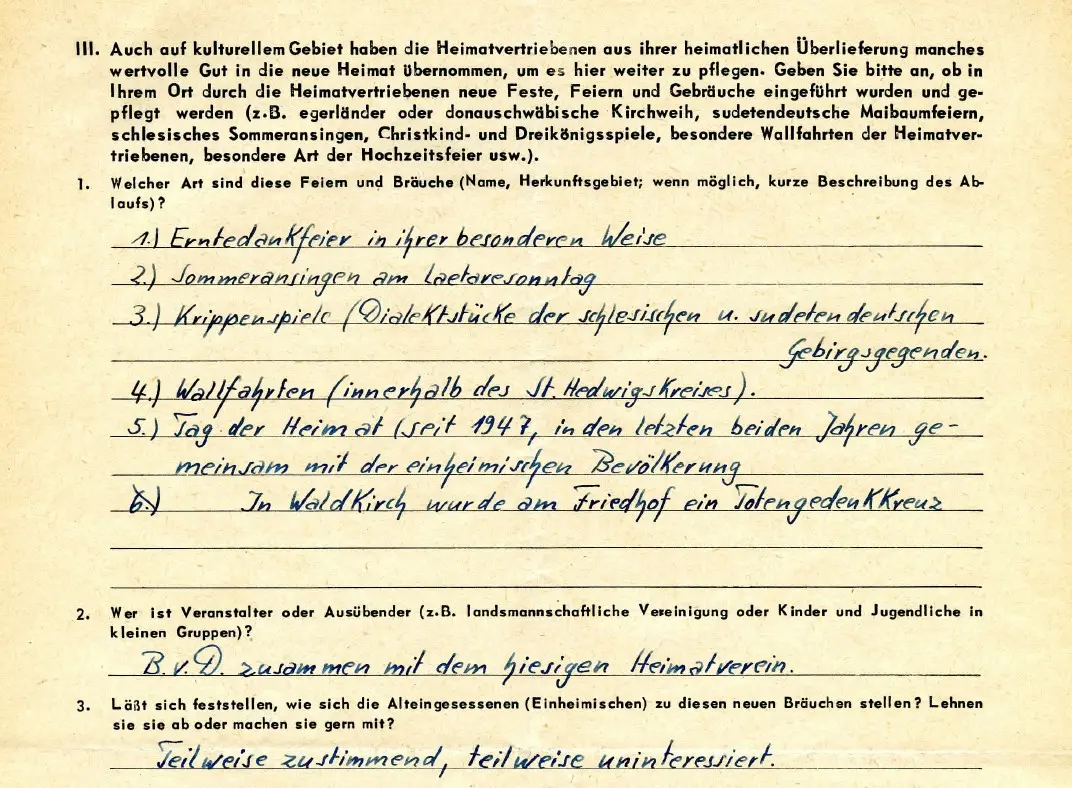 III. Auch auf kulturellem Gebiet haben die Heimatvertriebenen aus ihrer heimatlichen Überlieferung manches
wertvolle Gut in die neue Heimat übernommen, um es hier weiter zu pflegen. Geben Sie bitte an, ob in
Ihrem Ort durch die Heimatvertriebenen neue Feste, Feiern und Gebräuche eingeführt wurden und ge-
pflegt werden (z.B. egerländer oder donauschwäbische Kirchweih, sudetendeutsche Maibaumfeiern,
schlesisches Sommeransingen, Christkind- und Dreikönigsspiele, besondere Wallfahrten der Heimatver-
triebenen, besondere Art der Hochzeitsfeier usw.).
1. Welcher Art sind diese Feiern und Bräuche (Name, Herkunftsgebiet; wenn möglich, kurze Beschreibung des Ab-
laufs)?
1.) Erntedankfeier in ihrer besonderen Weise
2.) Sommeransingen am Laetaresonntag
3.) Krippenspiele (Dialektstücke der schlesischen u. sudetendeutschen
Gebirgsgegenden.
4.) Wallfahrten (innerhalb des St. Hedwigskreises).
5.) Tag der Heimat (seit 1947, in den letzten beiden Jahren ge-
meinsam mit der einheimischen Bevölkerung
6.) In Waldkirch wurde am Friedhof ein Totengedenkkreuz
2. Wer ist Veranstalter oder Ausübender (z.B. landsmannschaftliche Vereinigung oder Kinder und Jugendliche in
kleinen Gruppen)?
B.v.D. zusammen mit dem hiesigen Heimatverein.
3. Läßt sich feststellen, wie sich die Alteingesessenen (Einheimischen) zu diesen neuen Bräuchen stellen? Lehnen
sie sie ab oder machen sie gern mit?
Teilweise zustimmend, teilweise uninteressiert.